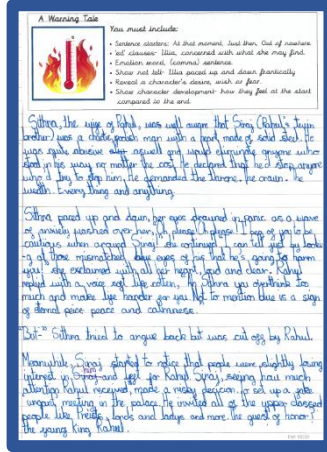 A Warning Tale
You must include:
• Sentence starters: At that moment, Just then, Out of nowhere
• 'ed' clauses- Illia, concerned with what she may find.
• Emotion word, (comma) sentence.
• Show not tell- Illia paced up and down frantically
• Reveal a character's desire, wish or fear.
• Show character development- how they feel at the start
compared to the end.
Sithra, the wife of Rahul, was well aware that Siraj (Rahul's twin
brother) was a man with a heart made of solid steel. He
was quite abusive aswell and would eliminate anyone who
stood in his way no matter the cost. He declared that he'd stop anyone
who'd try to stop him. He demanded the throne. The crown. The
wealth. Every thing and anything.
Sithra paced up and down, her eyes drowned in panic as a wave
of anxiety washed over her, "Oh please! Oh please! I beg of you to be
cautious when around Siraj" she continued "I can tell just by look-
g at those mismatched blue eyes of his that he's going to harm
you" she exclaimed with all her heart, loud and clear. Rahul
replied with a voice soft like cotton, "My Sithra you overthink too
much and make life harder for you. Not to mention blue is a sign
of eternal peace and calmness.
"But-" Sithra tried to argue back but was cut off by Rahul.
Meanwhile, Siraj started to notice that people were slightly losing
interest in him and left for Rahul. Siraj, seeing how much
attention Rahul received, made a risky decision: to set up a
urgent meeting in the palace. He invited all of the upper classed
people like, Priests, lords and ladys and more. The guest of honor?
the young King Rahul.